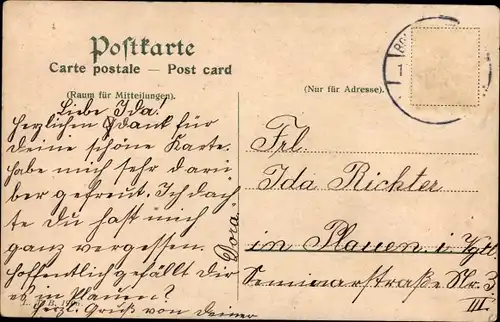 Postkarte
Carte postale — Post card
(Raum für Mitteilungen).
(Nur für Adresse).
Liebe Ida!
Herzlichen Dank für
deine schöne Karte.
habe mich sehr darü
ber gefreut. Ich dach
te Du hast mich
ganz vergessen.
Hoffentlich gefällt Dir
es in Plauen?
Herzl. Gruß von deiner
Dora
Frl.
Ida Richter
in Plauen i. Vgtl.
Seminarstraße Nr. 3
III.